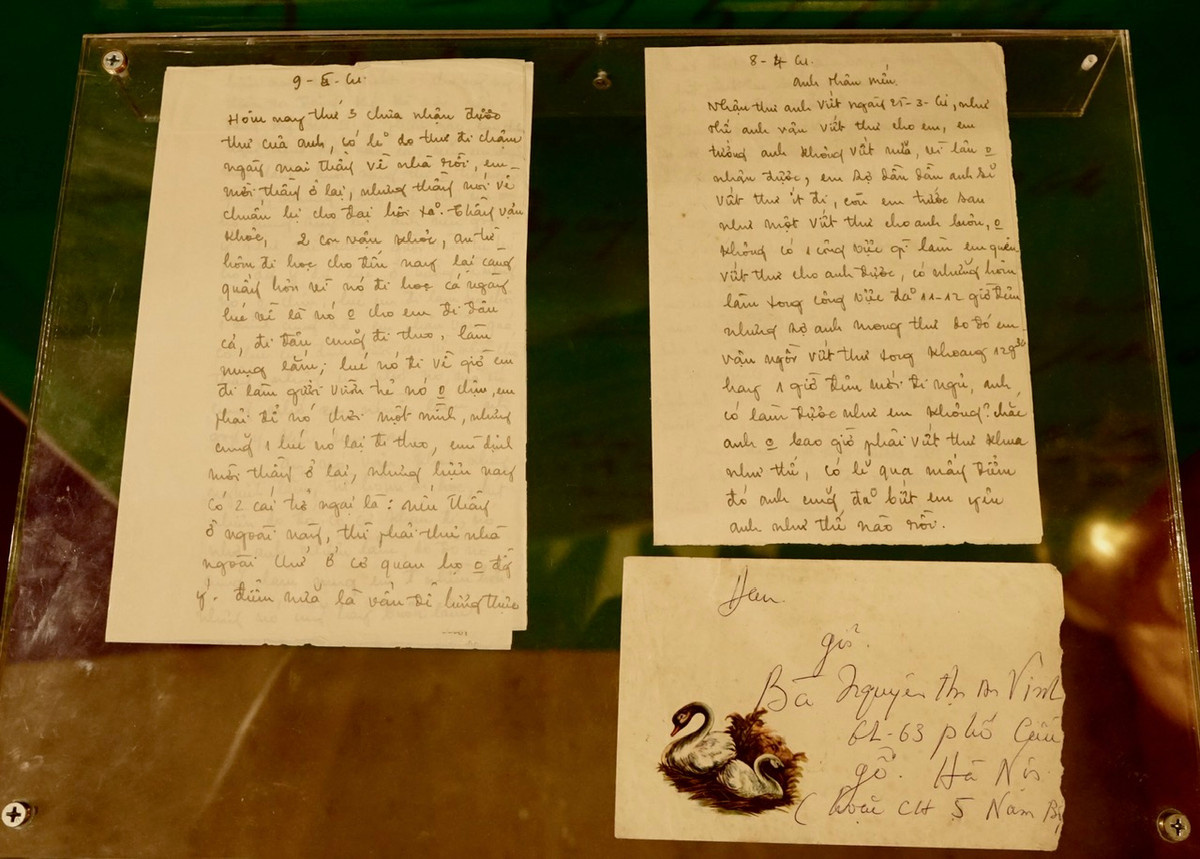 Hôm nay thứ 3 chưa nhận được
thư của anh, có lẽ do thư đi chậm
ngày mai thầy về nhà rồi, em
mời thầy ở lại, nhưng thầy nói về
chuẩn bị cho đại hội xã. Thầy vẫn
khỏe, 2 con vẫn khỏe,
hôm đi học cho đến nay lại càng
quấy hơn vì nó đi học cả ngày
lúc về là nó o cho em đi đâu
cả, đi đâu cũng đi theo, làm
nũng lắm; lúc nó đi về giờ em
đi làm gửi vườn trẻ nó o chịu, em
phải để nó chơi một mình, nhưng
cũng 1 lúc nó lại đi theo, em định
mời thầy ở lại, nhưng hiện nay
có 2 cái trở ngại là: nếu thầy
ở ngoài này, thì phải thuê nhà
ngoài chứ ở cơ quan họ o đồng
ý. Điểm nữa là vấn đề lương thực
8-4
Anh thân mến.
Nhận thư anh viết ngày 25-3- như
thế anh vẫn viết thư cho em, em
tưởng anh không viết nữa, vì lâu o
nhận được, em sợ dần dần anh sẽ
viết thư ít đi, còn em trước sau
như một viết thư cho anh luôn, o
không có 1 công việc gì làm em quên
viết thư cho anh được, có những hôm
làm xong công việc đã 11-12 giờ đêm
nhưng sợ anh mong thư do đó em
vẫn ngồi viết thư xong khoảng 12g30
hay 1 giờ đêm mới đi ngủ, anh
có làm được như em không? chắc
anh o bao giờ phải viết thư khuya
như thế, có lẽ qua mấy điểm
đó anh cũng đã biết em yêu
anh như thế nào rồi.
gửi.
Bà Nguyễn Thị An Vinh
61-63 phố Cầu
gỗ. Hà Nội.
(hoặc CH 5 Nam Bộ